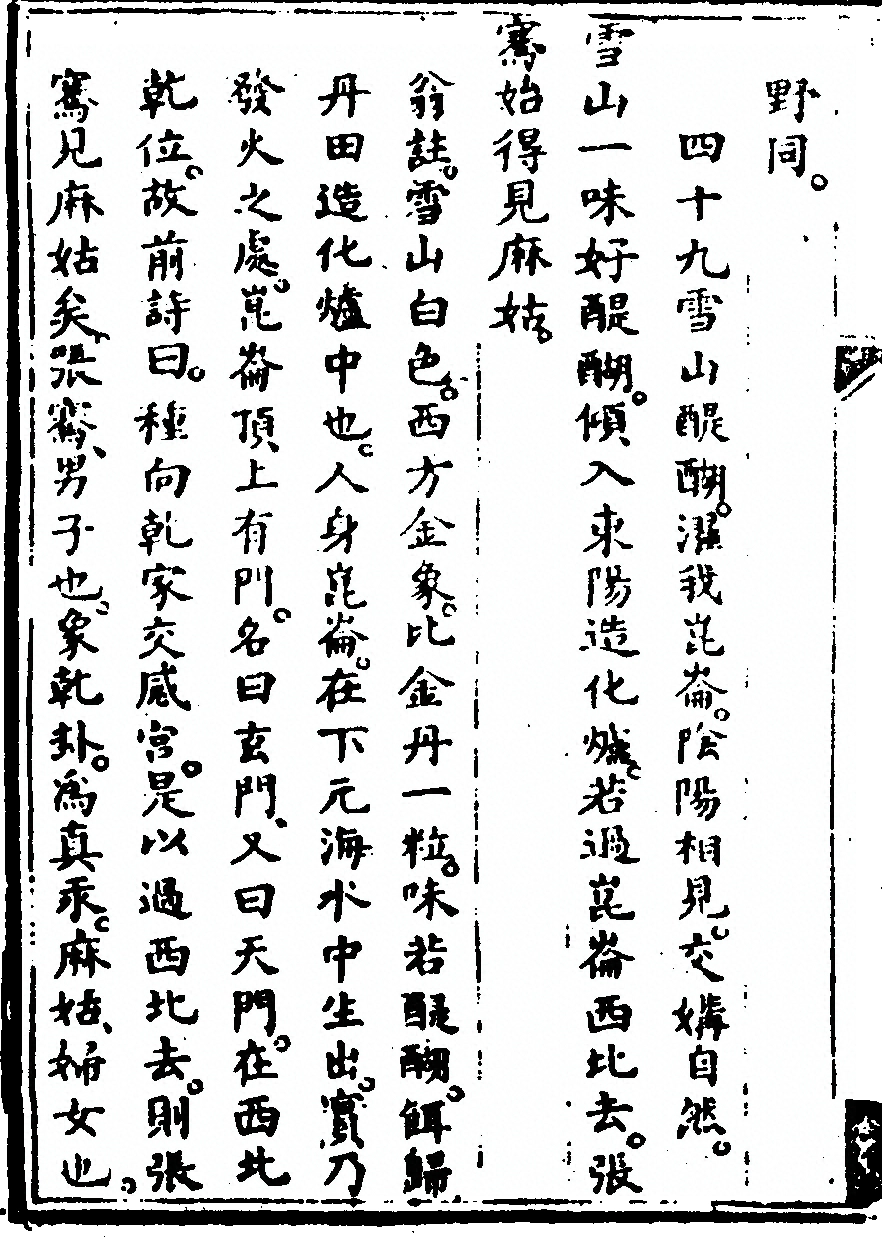 野同。
四十九雪山醍醐。濕我崑崙。陰陽相見。交媾自然。
雪山一味好醍醐。傾入東陽造化爐。若過崑崙西北去。張
騫始得見麻姑。
翁註。雪山白色。西方金象。比金丹一粒。味若醍醐。餌歸
丹田造化爐中也。人身崑崙。在下元海水中生出。實乃
發火之處。崑崙頂上有門。名曰玄門、又曰天門。在西北
乾位。故前詩曰。種向乾家交感宮。是以過西北去。則張
騫見麻姑矣、張騫、男子也。象乾卦。為真汞。麻姑、婦女也。